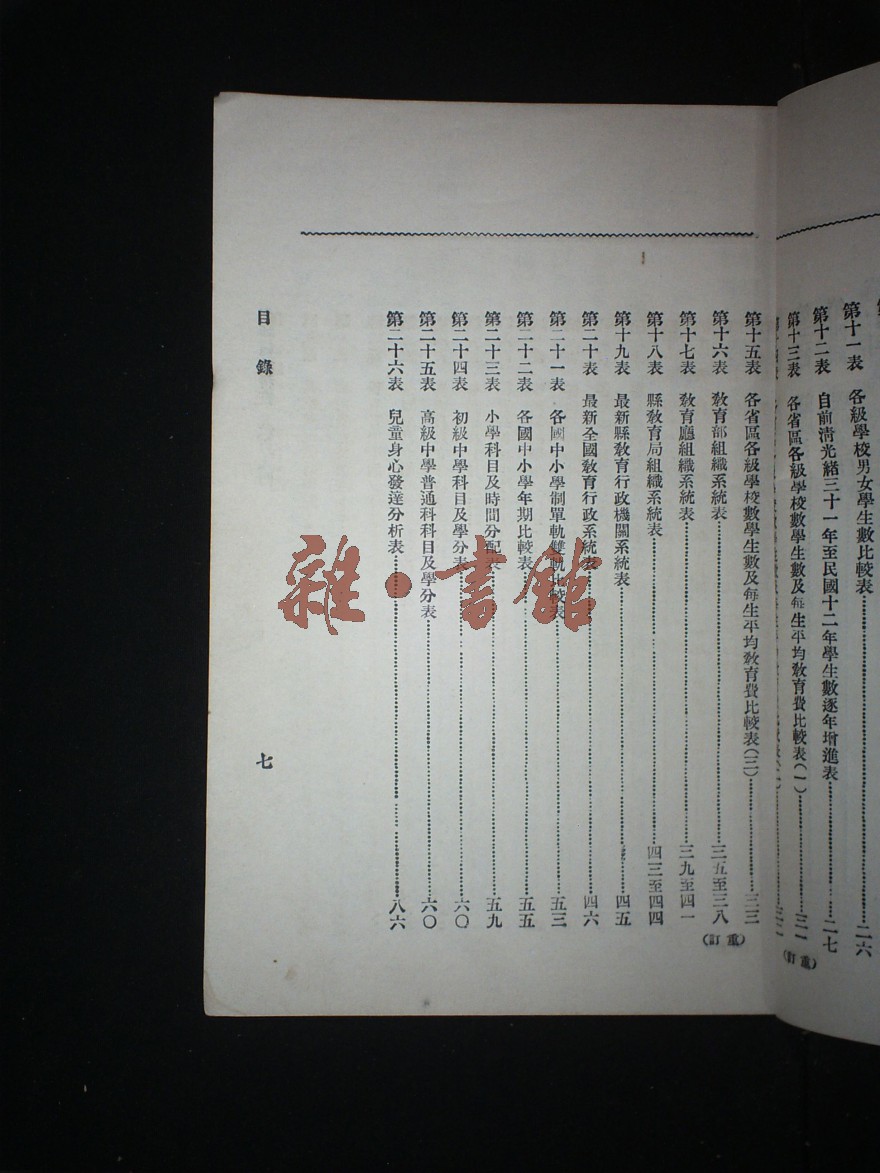 第十一表　各級學校男女學生數比較表……二六
第十二表　自前清光緒三十一年至民國十二年學生數逐年增進表……二七
第十三表　各省區各級學校數學生數及每生平均教育費比較表(一)……三一
(重訂)
第十五表　各省區各級學校數學生數及每生平均教育費比較表(三)……三三
第十六表　教育部組織系統表……三五至三八
(重訂)
第十七表　教育廳組織系統表……三九至四一
第十八表　縣教育局組織系統表……四三至四四
第十九表　最新縣教育行政機關系統表……四五
第二十表　最新全國教育行政系統表……四六
第二十一表　各國中小學制單軌雙軌比較表……五三
第二十二表　各國中小學年期比較表……五五
第二十三表　小學科目及時間分配表……五九
第二十四表　初級中學科目及學分表……六〇
第二十五表　高級中學普通科科目及學分表……六〇
第二十六表　兒童身心發達分析表……八六
目錄　七
雜·書館